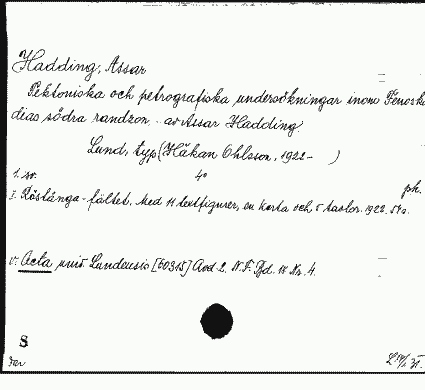 Hadding, Assar
Tektoniska och petrografiska undersökningar inom Fenoska
dias södra randzon. av Assar Hadding.
Lund, typ (Håkan Ohlsson, 1922- )
1. sv. 4o ph.
I. Röstånga-fältet. Med 11 textfigurer, en karta och 5 tavlor. 1922.
v. Acta univ. Lundensis [60315] Avd 2. N.F. Bd. 18 Nr. 4.
S